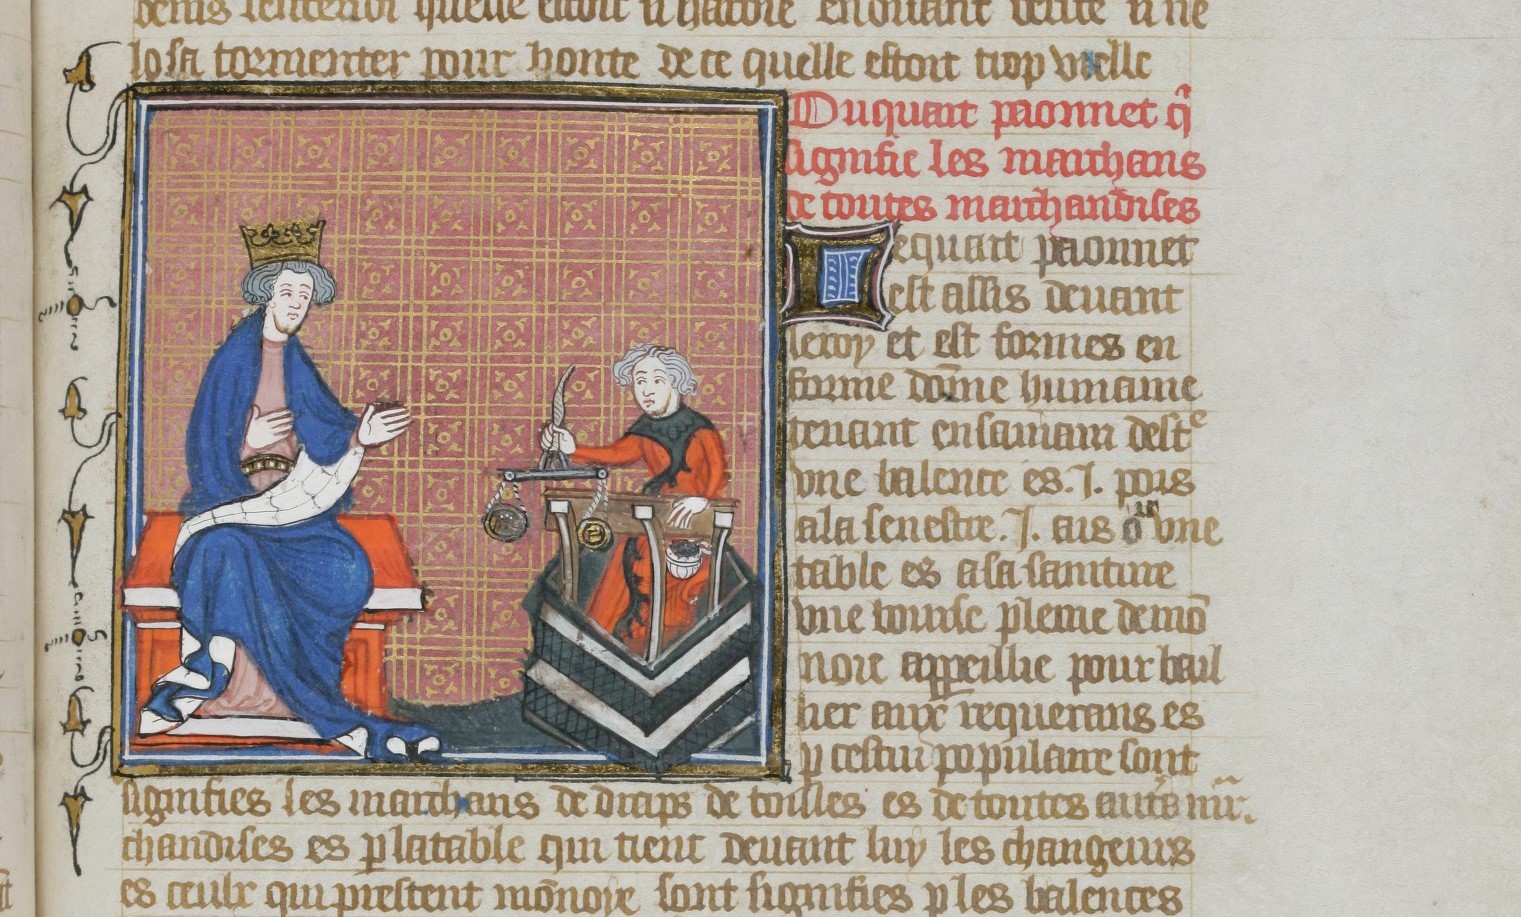 denis sentenoi quelle estoit
losa tormenter pour honte de ce quelle estoit trop vielle
Du quart paonnet q̃
signifie les marchans
de toutes marchandises
Lequart paonnet
est assis deuant
leroy et est formes en
forme dōme humaine
tenant en samain destre
vne balence es .I. pois
ala senestre .I. ais
table es asa sainture
vne bourse pleine de mō
noie appeillie pour bail
lier aux requerans es
p cestui populaire sont
signifies les marchans de draps de toilles es de toutes
chandises es p latable qui tient deuant luy les changeurs
es ceulx qui prestent mōnoye sont signifies p les balences